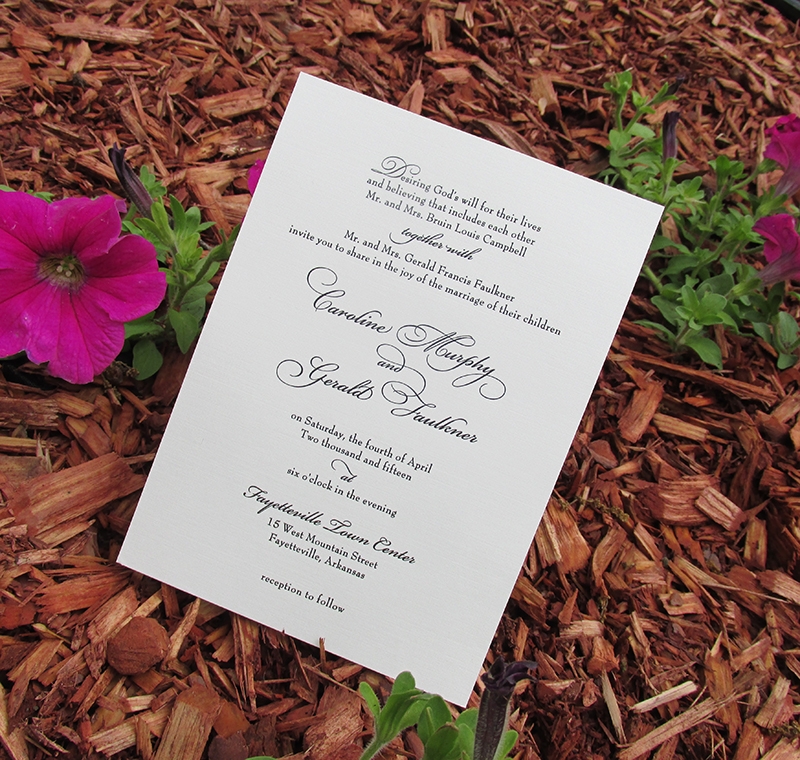 Desiring God's will for their lives
and believing that includes each other
Mr. and Mrs. Bruin Louis Campbell
together with
Mr. and Mrs. Gerald Francis Faulkner
invite you to share in the joy of the marriage of their children
Caroline Murphy
and
Gerald Faulkner
on Saturday, the fourth of April
Two thousand and fifteen
at
six o'clock in the evening
Fayetteville Town Center
15 West Mountain Street
Fayetteville, Arkansas
reception to follow